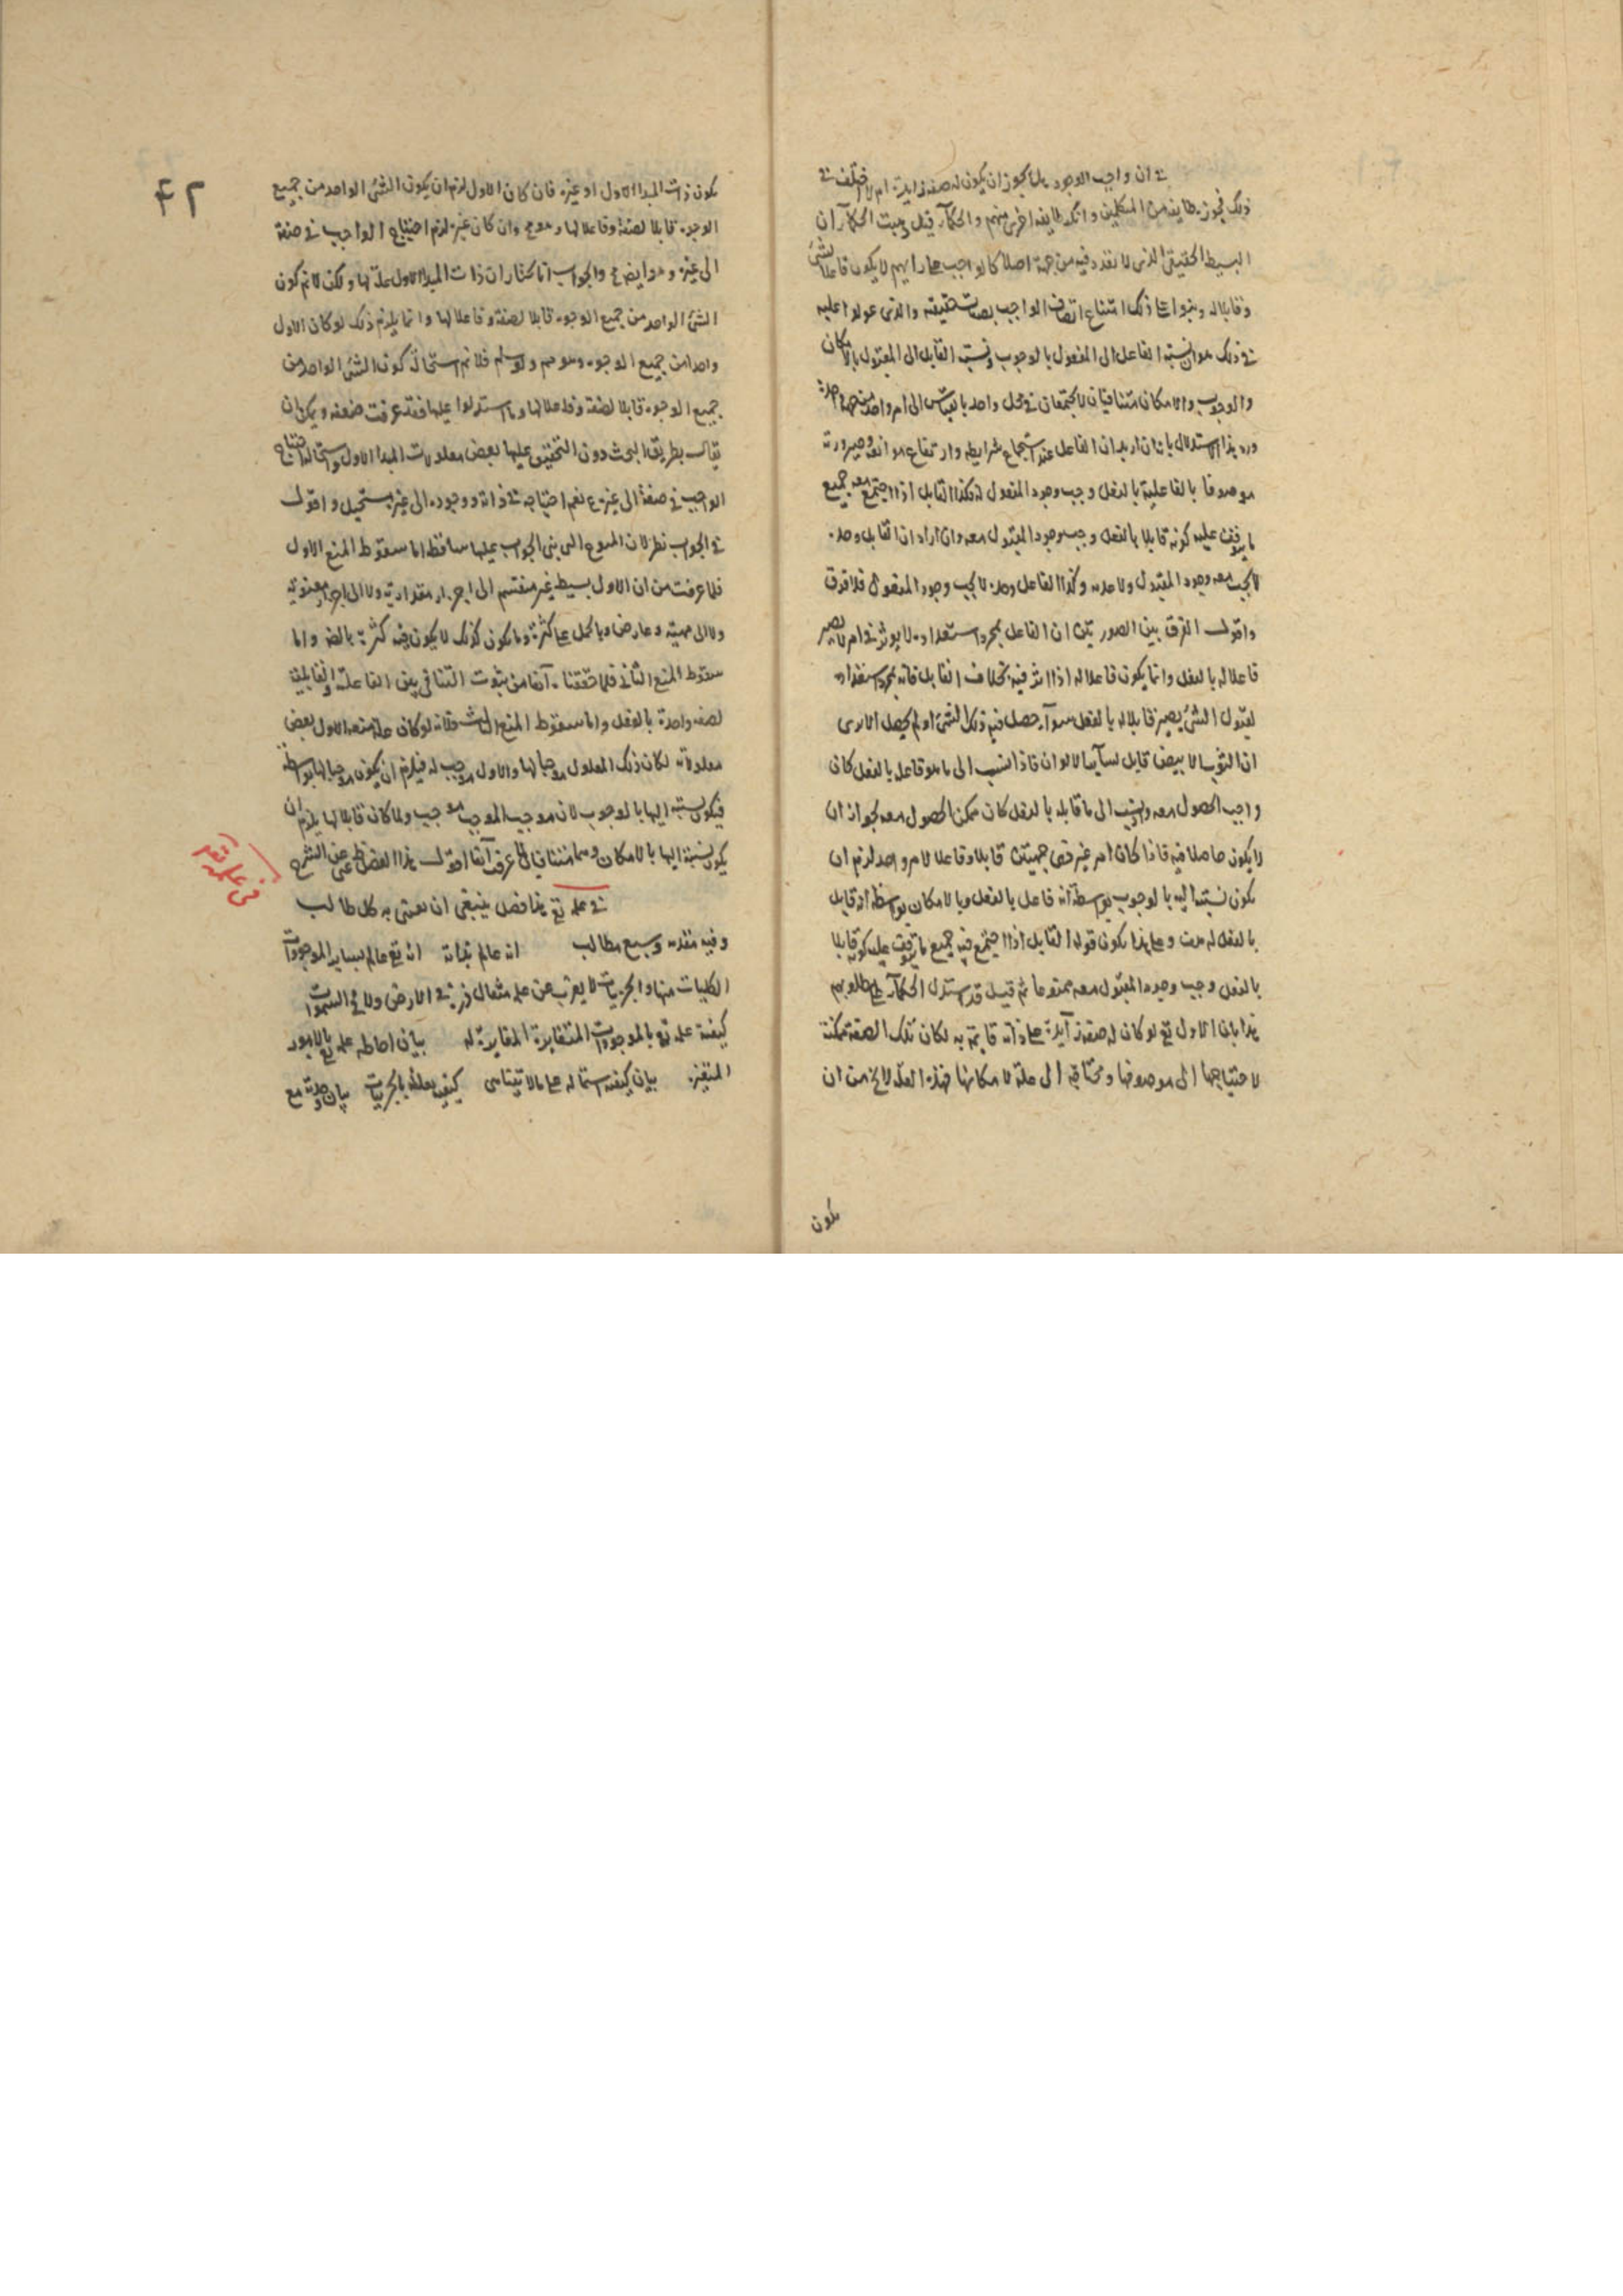 في ان واجب الوجود هل يجوز ان يكون له صفة زايدة ام لا اختلف في
ذلك فجوزه طايفة من المتكلمين وانكره طايفة اخرى منهم والحكمآء قيل ذهبت الحكمآء الى ان
البسيط الحقيقي الذي لا تعدد فيه من جهة اصلا كالواجب على رايهم لا يكون فاعلا لشئ
وقابلا له وبنوا على ذلك امتناع اتصاف الواجب بصفات حقيقية والذي عولوا عليه
في ذلك هو ان نسبة الفاعل الى المفعول بالوجوب ونسبة القابل الى المقبول بالامكان
والوجوب والامكان متنافيان لا يجتمعان في محل واحد بالقياس الى امر واحد من جهة واحدة
ورد هذا الاستدلال بانه ان اريد ان الفاعل عند استجماع شرايطه وارتفاع موانعه وصيرورته
موصوفا بالفاعلية بالفعل وجب وجود المفعول له فكذا القابل اذا اجتمع معه جميع
ما يتوقف عليه كونه قابلا بالفعل وجب وجود المقبول معه وان اراد ان القابل وحده
لا يجب معه وجود المقبول ولا عدمه وكذا الفاعل وحده لا يجب وجود المفعول فلا فرق
واقول الفرق بين الصورتين ان الفاعل بمجرد استعداده لا يؤثر في امر لا يصير
فاعلا له بالفعل وانما يكون فاعلا له اذا اثر فيه بخلاف القابل فانه بمجرد استعداده
لقبول الشئ يصير قابلا له بالفعل سوآء حصل فيه ذلك الشئ او لم يحصل الا يرى
ان الثوب الابيض قابل لسآير الالوان فاذا نسب الى ما هو فاعل بالفعل كان
واجب الحصول معه واذا نسب الى ما قابله بالفعل كان ممكن الحصول معه لجواز ان
لا يكون حاصلا فيه فاذا كان امر غير ذي جهتين قابلا وفاعلا لامر واحد لزم ان
يكون نسبته اليه بالوجوب بواسطة انه فاعل بالفعل وبالامكان بواسطة انه قابل
بالفعل له وعلى هذا يكون قوله القابل اذا اجتمع فيه جميع ما يتوقف عليه كونه قابلا
بالفعل وجب وجود المقبول معه ممنوعا ثم قيل قد استدل الحكمآء على مطلوبهم
هذا بان الاول تع لو كان له صفة زآيدة على ذاته قايمة به لكان تلك الصفة ممكنة
لاحتياجها الى موصوفها ومحتاجة الى علة لامكانها فهذه العلة لا يخ من ان
يكون
٤٢
يكون ذات المبدا الاول او غيره فان كان الاول لزم ان يكون الشئ الواحد من جميع
الوجوه قابلا لصفة وفاعلا لها وهو مح وان كان غيره لزم احتياج الواجب في صفة
الى غيره وهو ايضا مح والجواب انا نختار ان ذات المبدا الاول علة لها ولكن لا نم كون
الشئ الواحد من جميع الوجوه قابلا لصفة وفاعلا لها وانما يلزم ذلك لو كان الاول
واحدا من جميع الوجوه وهو مم ولو سلم فلا نم استحالة كون الشئ الواحد من
جميع الوجوه قابلا لصفة وفاعلا لها وما استدلوا عليها فقد عرفت ضعفه ويمكن ان
يقال بطريق البحث دون التحقيق عليها بعض معلولات المبدا الاول واستحالة احتياج
الواجب في صفة الى غيره مم نعم احتياجه في ذاته ووجوده الى غيره مستحيل واقول
في الجواب نظر لان المنوع التي بنى الجواب عليها ساقطة اما سقوط المنع الاول
فلما عرفت من ان الاول بسيط غير منقسم الى اجزاء مقدارية ولا الى اجزاء معنوية
ولا الى مهية وعارض وبالجملة على كثرة وما يكون كذلك لا يكون فيه كثرة بالضرورة واما
سقوط المنع الثاني فلما حققناه آنفا من ثبوت التنافي بين الفاعلية والقابلية
لصفة واحدة بالفعل واما سقوط المنع الثالث فلانه لو كان علة صفة الاول بعض
معلولاته لكان ذلك المعلول موجبا لها والاول موجب له فيلزم ان يكون موجبا لها بواسطة
فيكون نسبته اليها بالوجوب لان موجب الموجب موجب ولما كان قابلا لها يلزم ان
يكون نسبته اليها بالامكان وهما متنافيان لما عرفت آنفا اقول هذا الفصل غني عن الشرح
في علمه تع هذا فصل ينبغي ان يعتنى به كل طالب
وفيه مقدمة وسبع مطالب انه عالم بذاته انه تع عالم بساير الموجودات
الكليات منها والجزييات لا يعزب عن علمه مثقال ذرة في الارض ولا في السموات
كيفية علمه تع بالموجودات المتغايرة المغايرة له بيان احاطة علمه تع بالامور
المتغيرة بيان كيفية اشتماله على ما لا يتناهى كيفية تعلقه بالجزييات بيان وحدته مع
في علمه تع